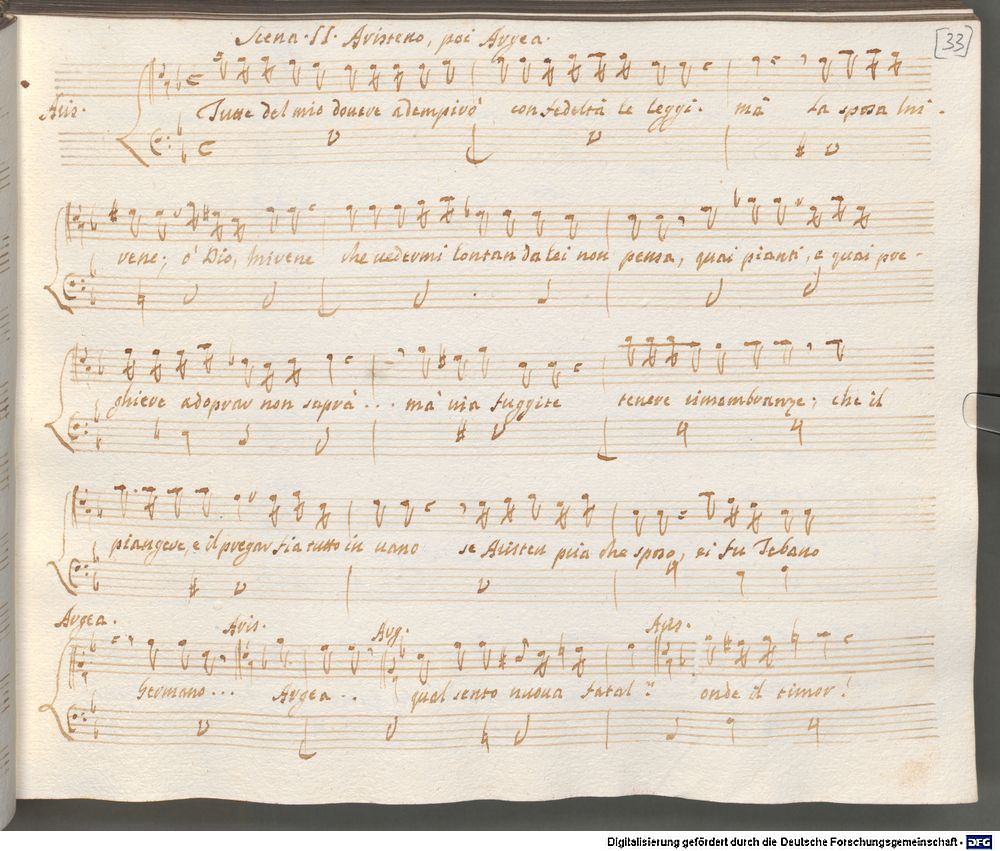 Scena. II. Aristeno, poi Argea.
[33]
Aris.
Tutte del mio dovere adempirò con fedeltà le leggi. mà la sposa Ini-
vene; ò Dio, Inivene che vedermi lontan da lei non pensa, quai pianti, e quai pre-
ghiere adoprar non saprà... mà via fuggite tenere rimembranze; che il
piangere, e il pregar fia tutto in vano se Aristen pria che sposo, ei fu Tebano
Argea. Aris. Arg. Aris.
Germano... Argea... qual sento nuova fatal? onde il timor!
Digitalisierung gefördert durch die Deutsche Forschungsgemeinschaft - DFG